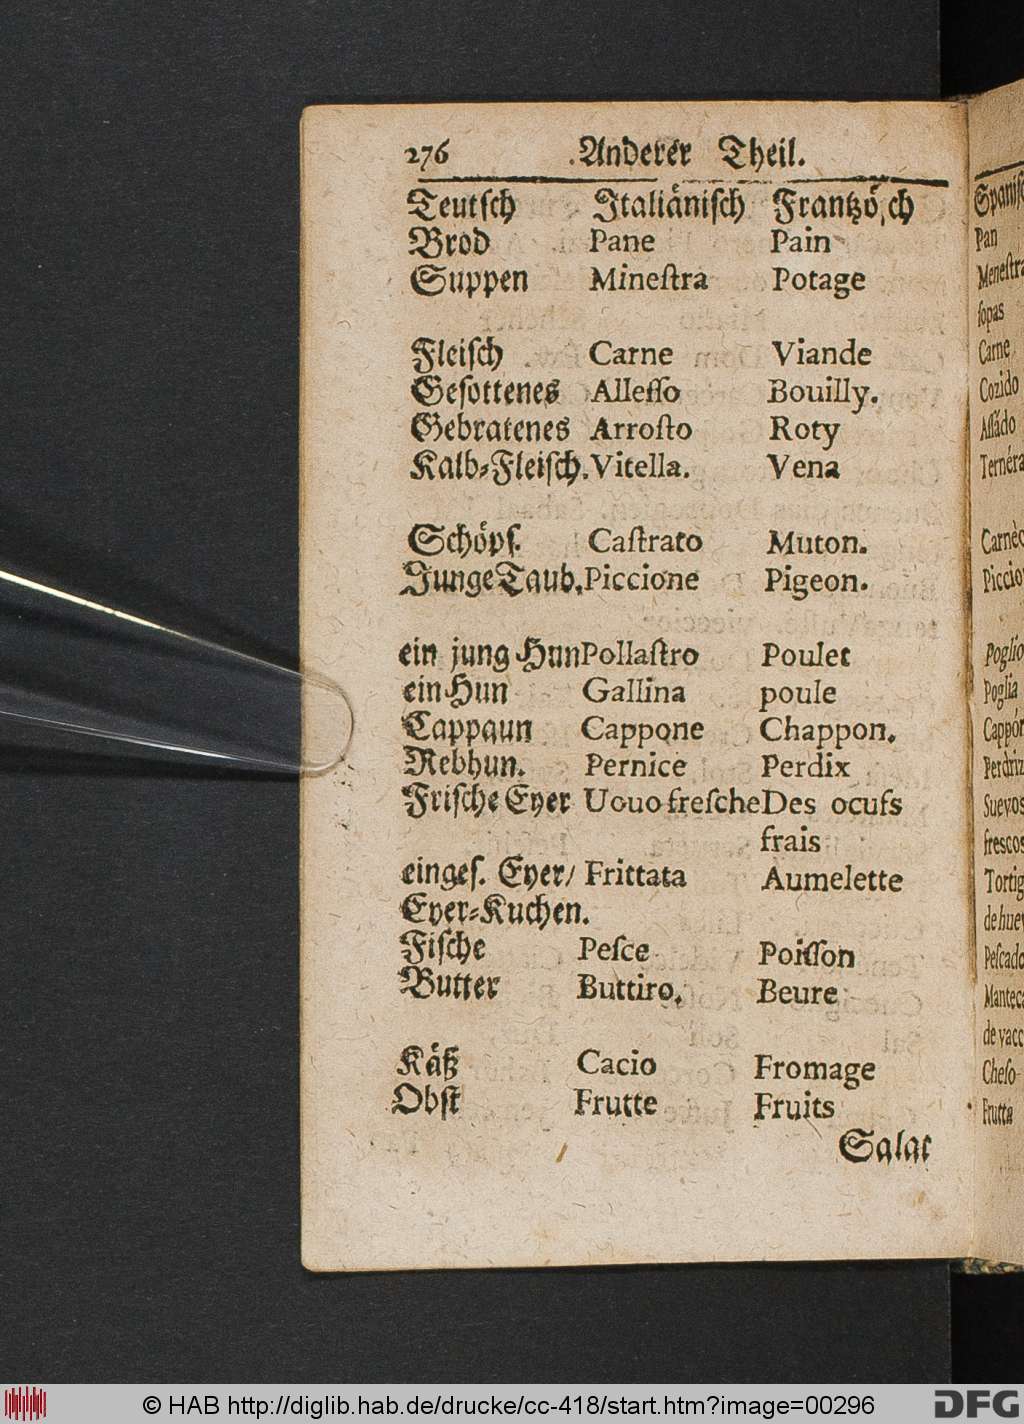 276 Anderer Theil.
Teutsch Italiänisch Frantzö,ch
Brod Pane Pain
Suppen Mineſtra Potage
Fleiſch Carne Viande
Geſottenes Alleſſo Bouilly.
Gebratenes Arroſto Roty
Kalb-Fleiſch. Vitella. Vena
Schöpſ. Caſtrato Muton.
Junge Taub. Piccione Pigeon.
ein jung Hun Pollaſtro Poulet
ein Hun Gallina poule
Cappaun Cappone Chappon.
Rebhun. Pernice Perdix
Friſche Eyer Uouo freſche Des ocufs
frais
eingeſ. Eyer/ Frittata Aumelette
Eyer-Kuchen.
Fiſche Peſce Poiſſon
Butter Buttiro. Beure
Käß Cacio Fromage
Obſt Frutte Fruits
Salat
Pan
ſopas
Carne
Cozido
Aſſádo
Poglia
freſcos
de vacc
Cheſo
Frutta
© HAB http://diglib.hab.de/drucke/cc-418/start.htm?image=00296
DFG